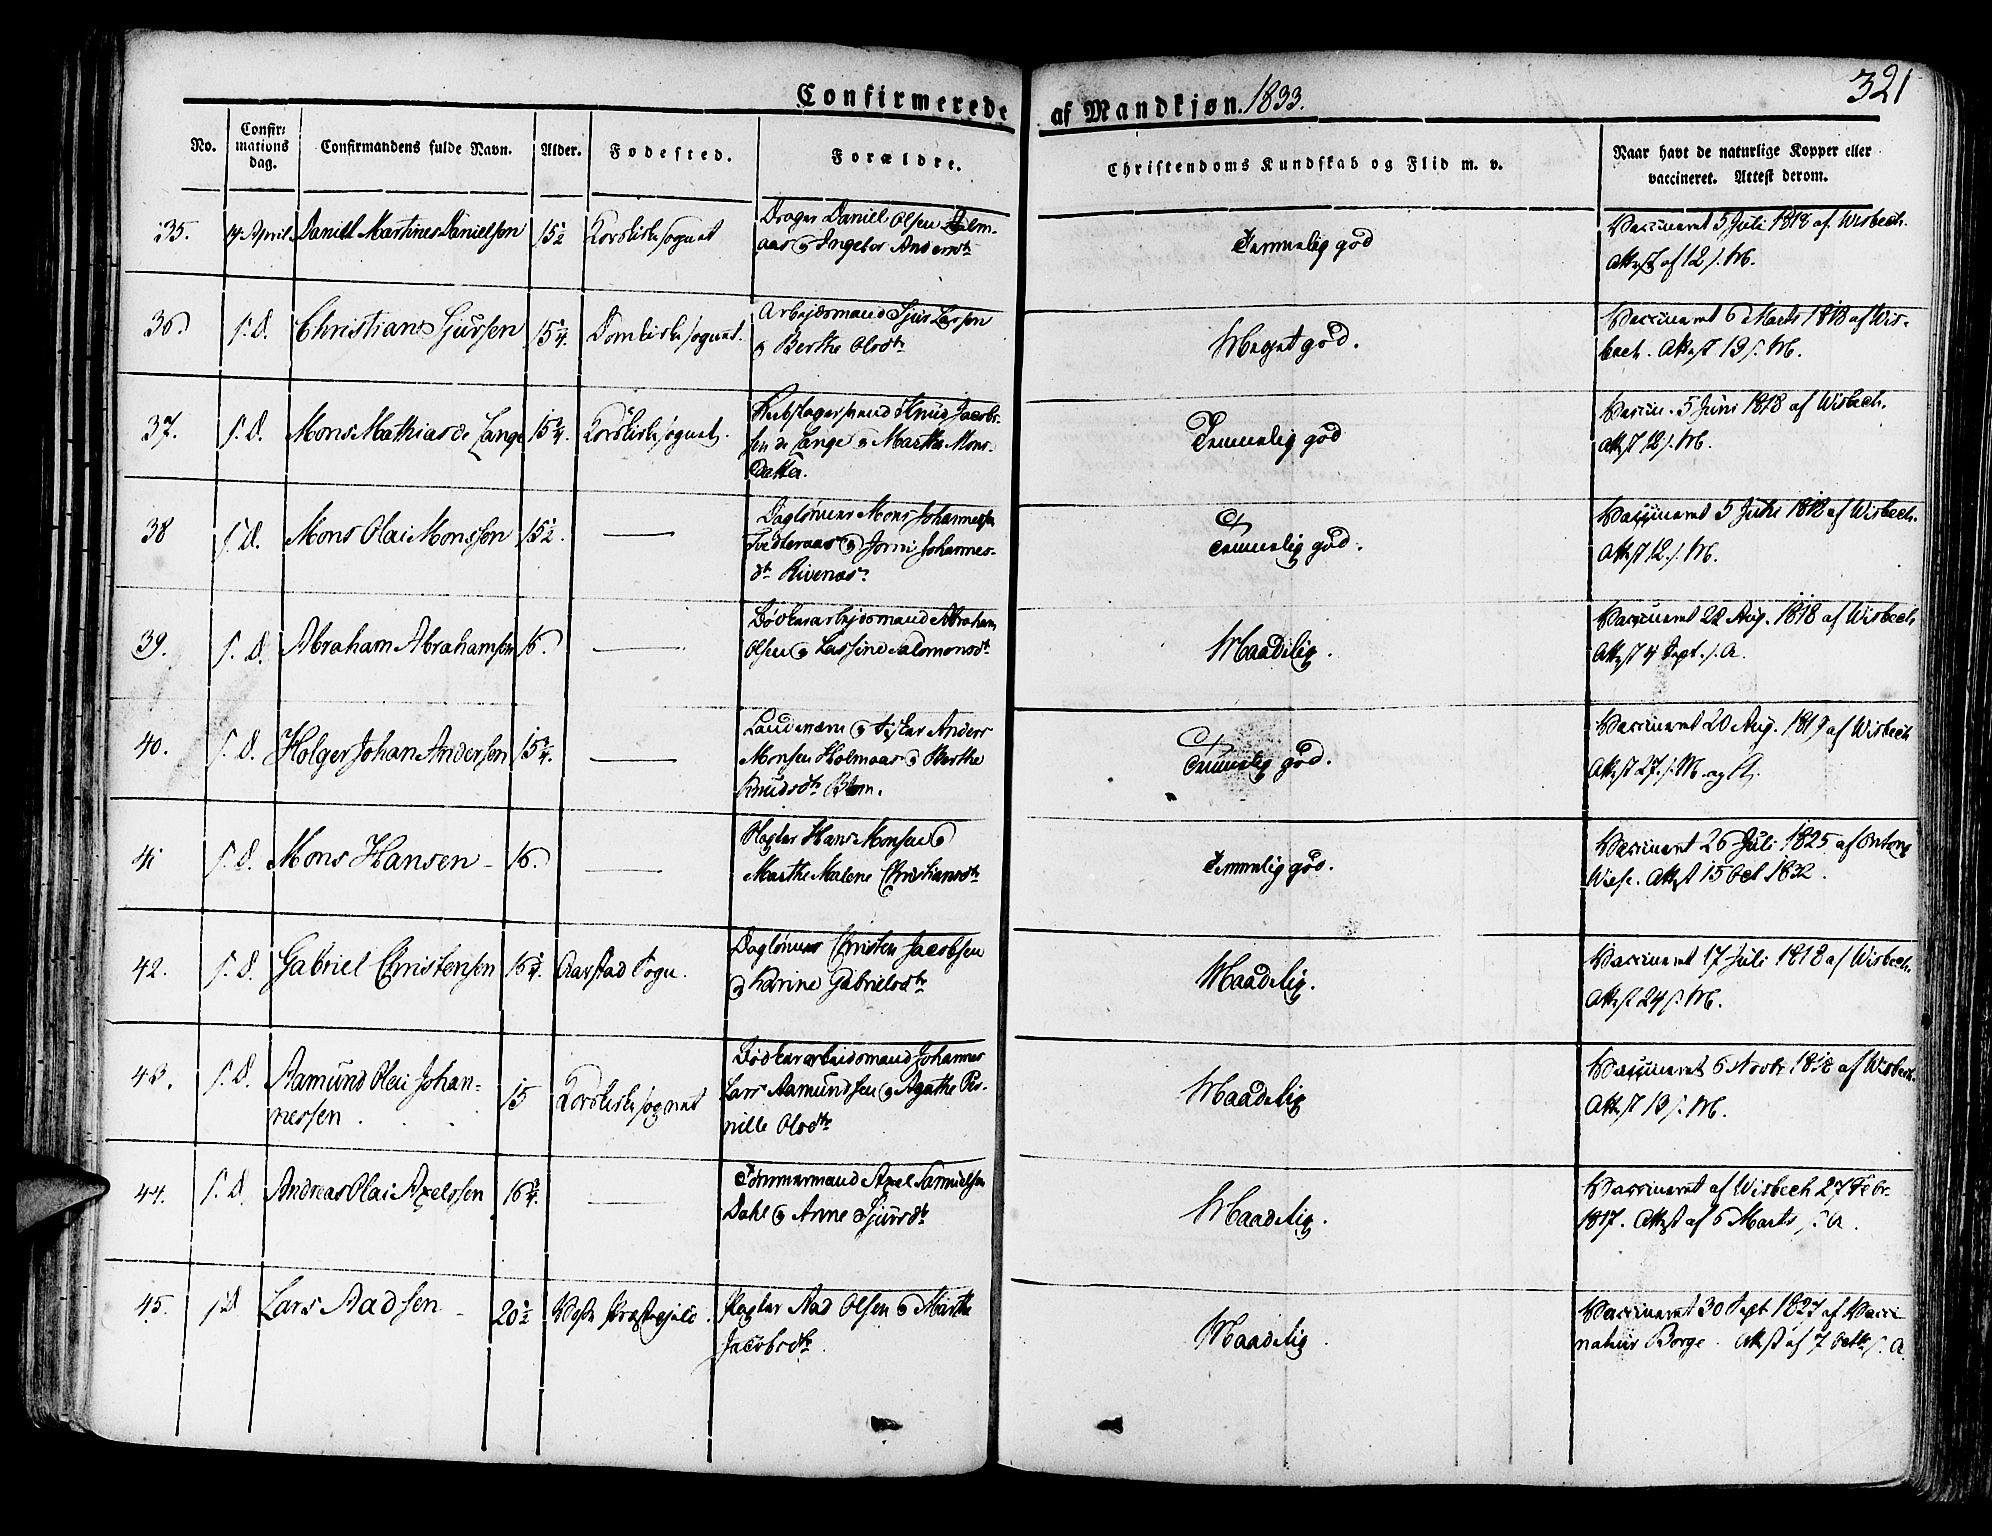 Confirmerede af Mandkjøn. 1833. 321
No. Confir: mations dag. Confirmandens fulde Navn. Alder. Fødested. Forældre. Christendoms Kundskab og Flid m. v. Naar havt de naturlige Kopper eller vaccineret. Attest derom.
35. 14 April. Daniel Martines Danielsen 15½ Korskirkesognet Drager Daniel Olsen Holm-
aas og Ingebor Andersdtr Temmelig god Vaccineret 5 Juli 1818 af Wisbech.
Attest af 12 s. M.
36. s. D. Christian Sjursen 15¼. Domkirkesognet. Arbejdsmand Sjur Larsen
og Berthe Olsdtr Meget god. Vaccineret 6 Marts 1818 af Wis-
bech. Attest 13 s. M.
37. s. D. Mons Mathias de Lange 15¾. Korskirkesognet. Knud Jacob-
sen de Lange og Marthe Mons-
datter. Temmelig god Vaccin. 5 Juni 1818 af Wisbech.
Attest 12 s. M.
38 s. D. Mons Olai Monssen 15½. — Dagløner Mons Johannessen
Tvedteraas og Jorni Johannes-
dtr Rivenæs. Temmelig god. Vaccineret 5 Juni 1818 af Wisbech.
Attest 12. s. M.
39. s. D. Abraham Abrahamsen 16. — Bødkerarbejdsmand Abraham
Olsen og Lassine Salomonsdtr Maadelig. Vaccineret 22 Aug. 1818 af Wisbech
Attest 4 Sept. s. A.
40. s. D. Holger Johan Andersen 15¾. — Anders
Monsen Holmaas og Berthe
Knudsdtr Blom. Temmelig god. Vaccineret 20 Aug. 1819 af Wisbech
Attest 27. s. M. og A.
41 s. D. Mons Hansen - 16. — Hans Monsen og
Marthe Malene Christiansdtr Temmelig god. Vaccineret 26 Juli 1825 af Anton
Wiese. Attest 15 Oct 1832.
42. s. D. Gabriel Christensen 16¼. Aarstad Sogn. Dagløner Christen Jacobsen
og Karine Gabrielsdtr Maadelig. Vaccineret 17 Juli 1818 af Wisbech.
Attest 24 s. M.
43. s. D. Aamund Olai Johan-
nessen. 15 Korskirkesognet Bødkerarbeidsmand Johannes
Lars Aamundsen og Agathe Per-
nille Olsdtr Maadelig Vaccineret 6 Novbr 1818 af Wisbech.
Attest 13 s. M.
44. s. D. Andreas Olai Axelssen 16¾. — Tømmermand Axel Samuelsen
Dahl og Anne Sjursdtr Maadelig. Vaccineret af Wisbech 27 Febr.
1817. Attest af 6 Marts s. A.
45. s D Lars Aadsen - 20½ Præstegjeld. Aad Olsen og Marthe
Jacobsdtr. Maadelig. Vaccineret 30 Sept 1827 af Vacci
natuir Borge. Attest af 7 Octb. s. A.